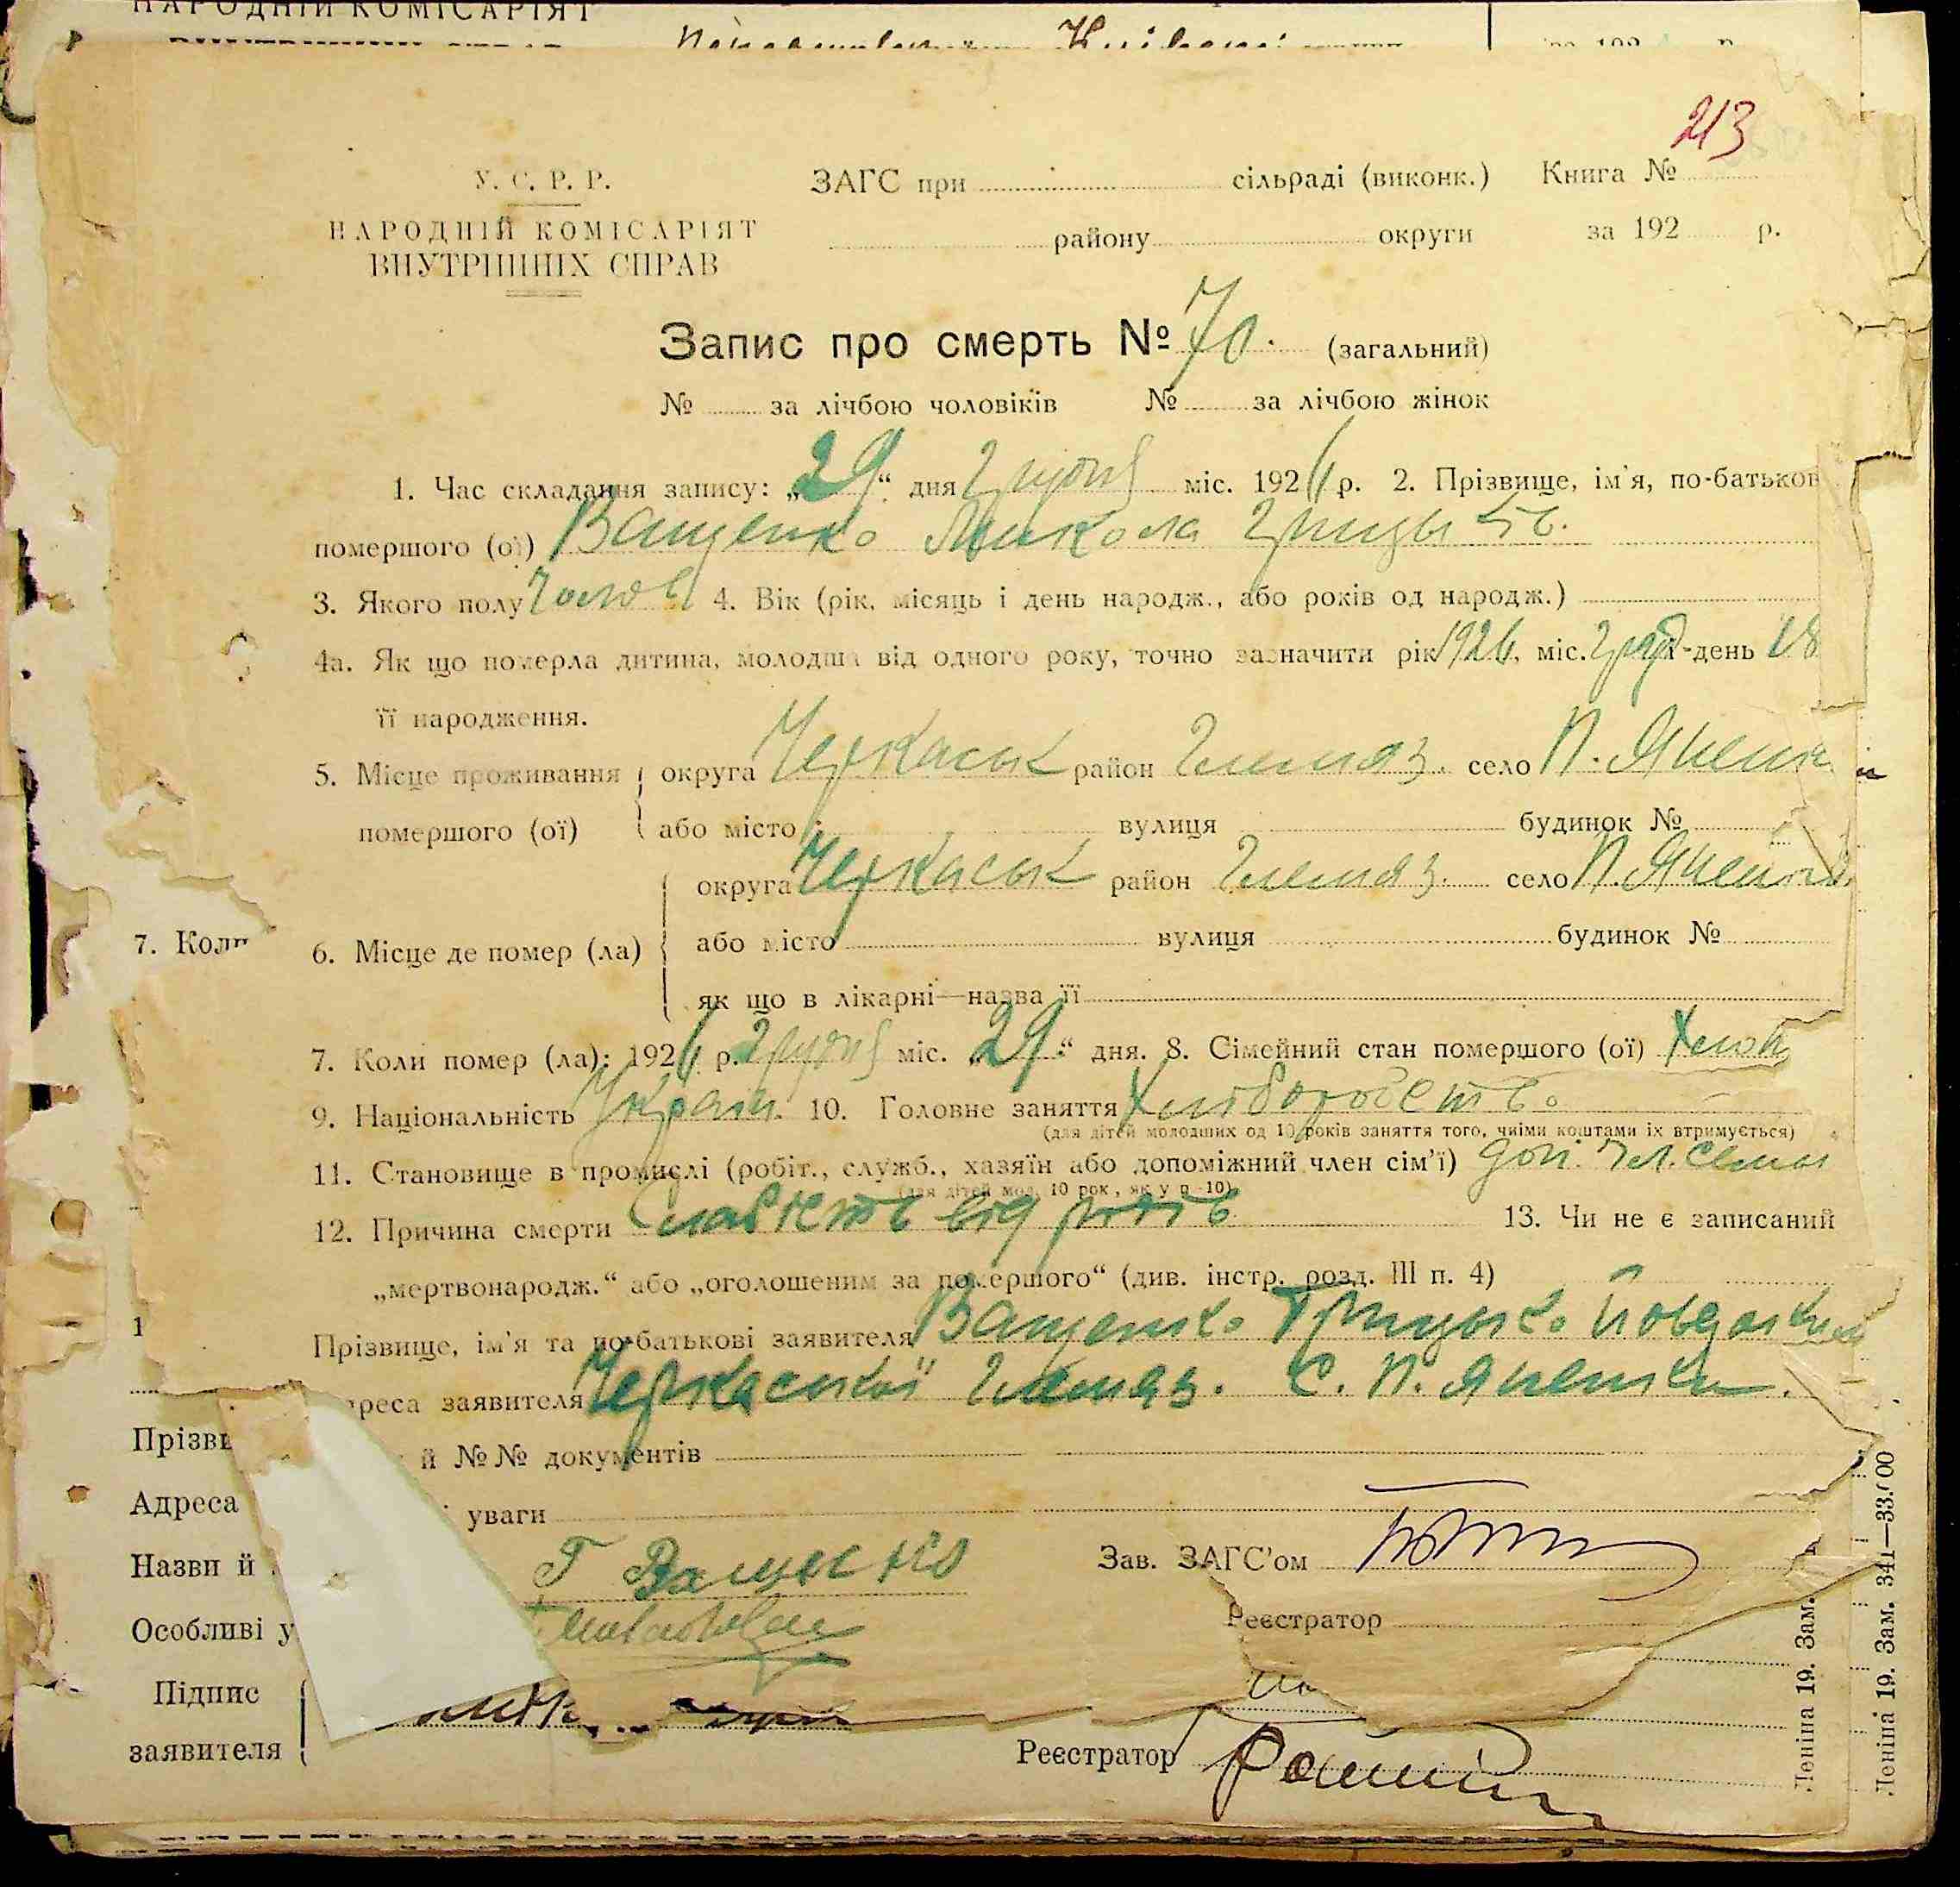 НАРОДНІЙ КОМІСАРІЯТ
213
У. С. Р. Р.
ЗАГС при сільраді (виконк.) Книга №
НАРОДНІЙ КОМІСАРІЯТ
району округи за 192 р.
ВНУТРІШНІХ СПРАВ
Запис про смерть № 70. (загальний)
№ за лічбою чоловіків № за лічбою жінок
1. Час складання запису: „29“ дня грудня міс. 1926 р. 2. Прізвище, ім'я, по-батьков
помершого (ої) Ващенко Микола Грицьків.
3. Якого полу Чолов 4. Вік (рік, місяць і день народж., або років од народж.)
4а. Як що померла дитина, молодша від одного року, точно зазначити рік 1926, міс. груд день 18
її народження.
5. Місце проживання округа Черкаськ район Гельмяз. село П.
помершого (ої) або місто вулиця будинок №
округа Черкаськ район Гельмяз. село П.
7. Коли
6. Місце де помер (ла) або місто вулиця будинок №
як що в лікарні—назва її
7. Коли помер (ла): 1926 р. грудня міс. „29“ дня. 8. Сімейний стан помершого (ої)
9. Національність Україн. 10. Головне заняття Хліборобств.
(для дітей молодших од 10 років заняття того, чиїми коштами їх втримується)
11. Становище в промислі (робіт., служб., хазяїн або допоміжний член сім'ї) доп. чл. семьи
(для дітей мол. 10 рок, як у п. 10)
12. Причина смерти від родів 13. Чи не є записаний
„мертвонародж.“ або „оголошеним за помершого“ (див. інстр. розд. III п. 4)
1
Прізвище, ім'я та по-батькові заявителя Ващенко Грицько
адреса заявителя Черкаської Гельмяз. С. П.
Прізв й №№ документів
Адреса уваги
Назви й Г Ващенко Зав. ЗАГС'ом
Особливі у Реєстратор
Підпис
заявителя Реєстратор
Леніна 19. Зам.
Леніна 19. Зам. 341—33.000